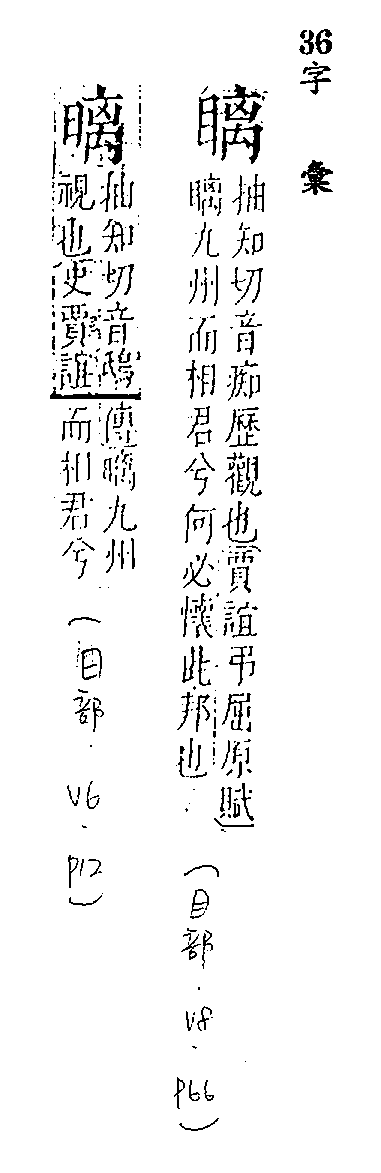 36字彙
瞝
抽知切音痴歷觀也賈誼弔屈原賦
瞝九州而相君兮何必懷此邦也
(目部.V8.P66)
抽知切音
視也史賈誼
傳 九州
而相君兮
(日部.V6.P12)